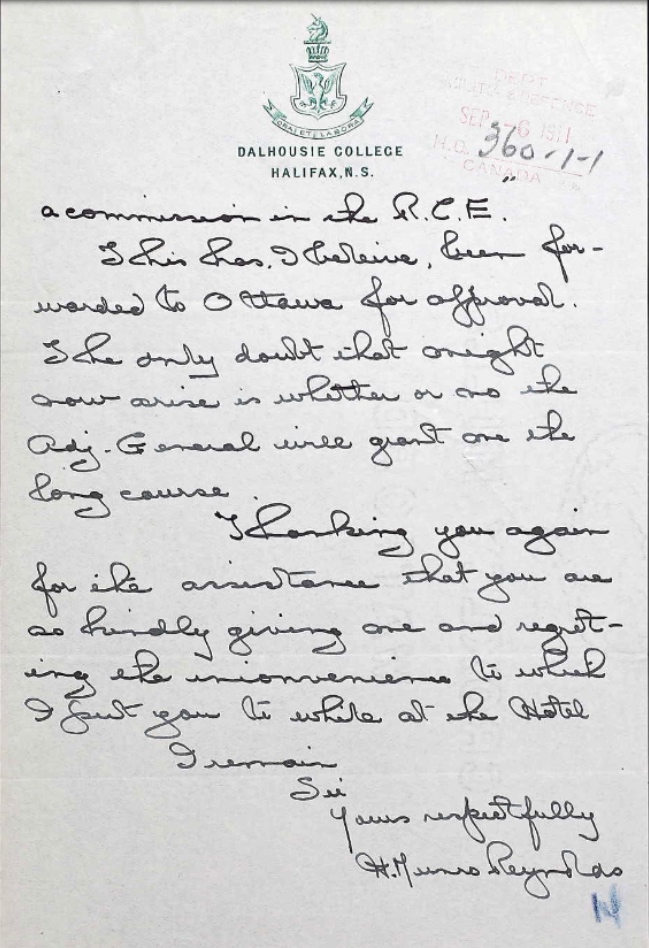 ORA ET LABORA
DALHOUSIE COLLEGE
HALIFAX, N.S.
DEPT
MILITIA & DEFENCE
SEP -6 1911
H.Q. 360-1-1
CANADA
a commission in the R.C.E.
This has, I beleive, been for-
warded to Ottawa for approval.
The only doubt that might
now arise is whether or no the
Adj. General will grant me the
long course.
Thanking you again
for the assistance that you are
so kindly giving me and regret-
ing the inconvenience to which
I put you to while at the Hotel
I remain
Sir
Yours respectfully
H. Munro Reynolds
N